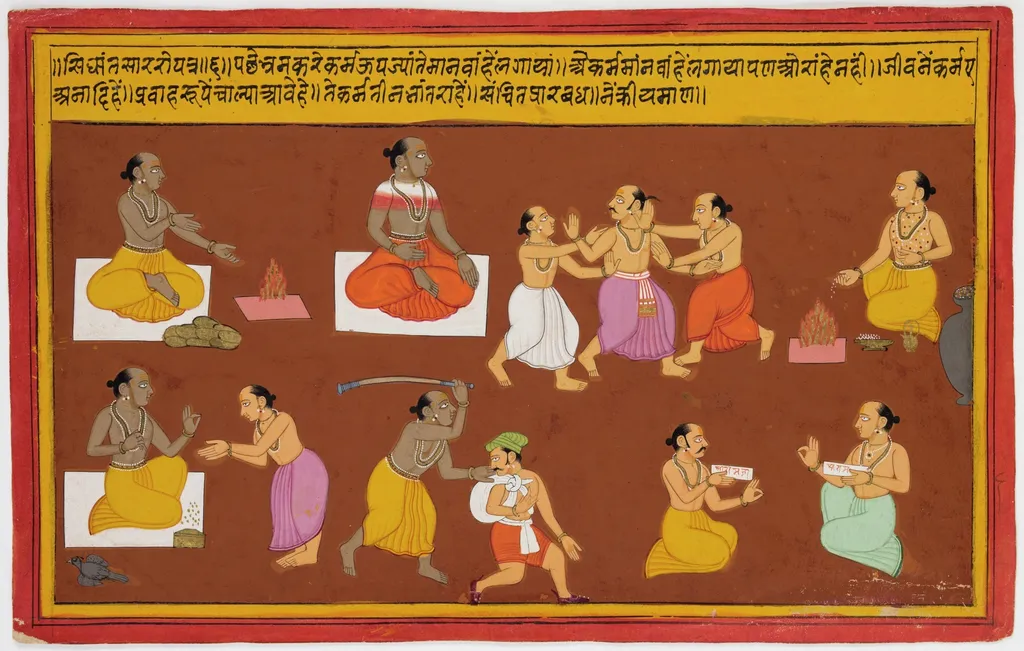 ॥सिधांतसाररोपत्र॥६॥पछेब्रमकरेकर्मऊपज्यांतेमानवांहेंलगायां॥ऐकर्ममांनवांहेंलगायापणओरांहेनहीं॥जीवनेंकर्मए
अनादिहें॥प्रवाहरूपेंचाल्याआवेहे॥तेकर्मतीनभांतराहें॥संचितपारबध॥नेंकीयमाण॥